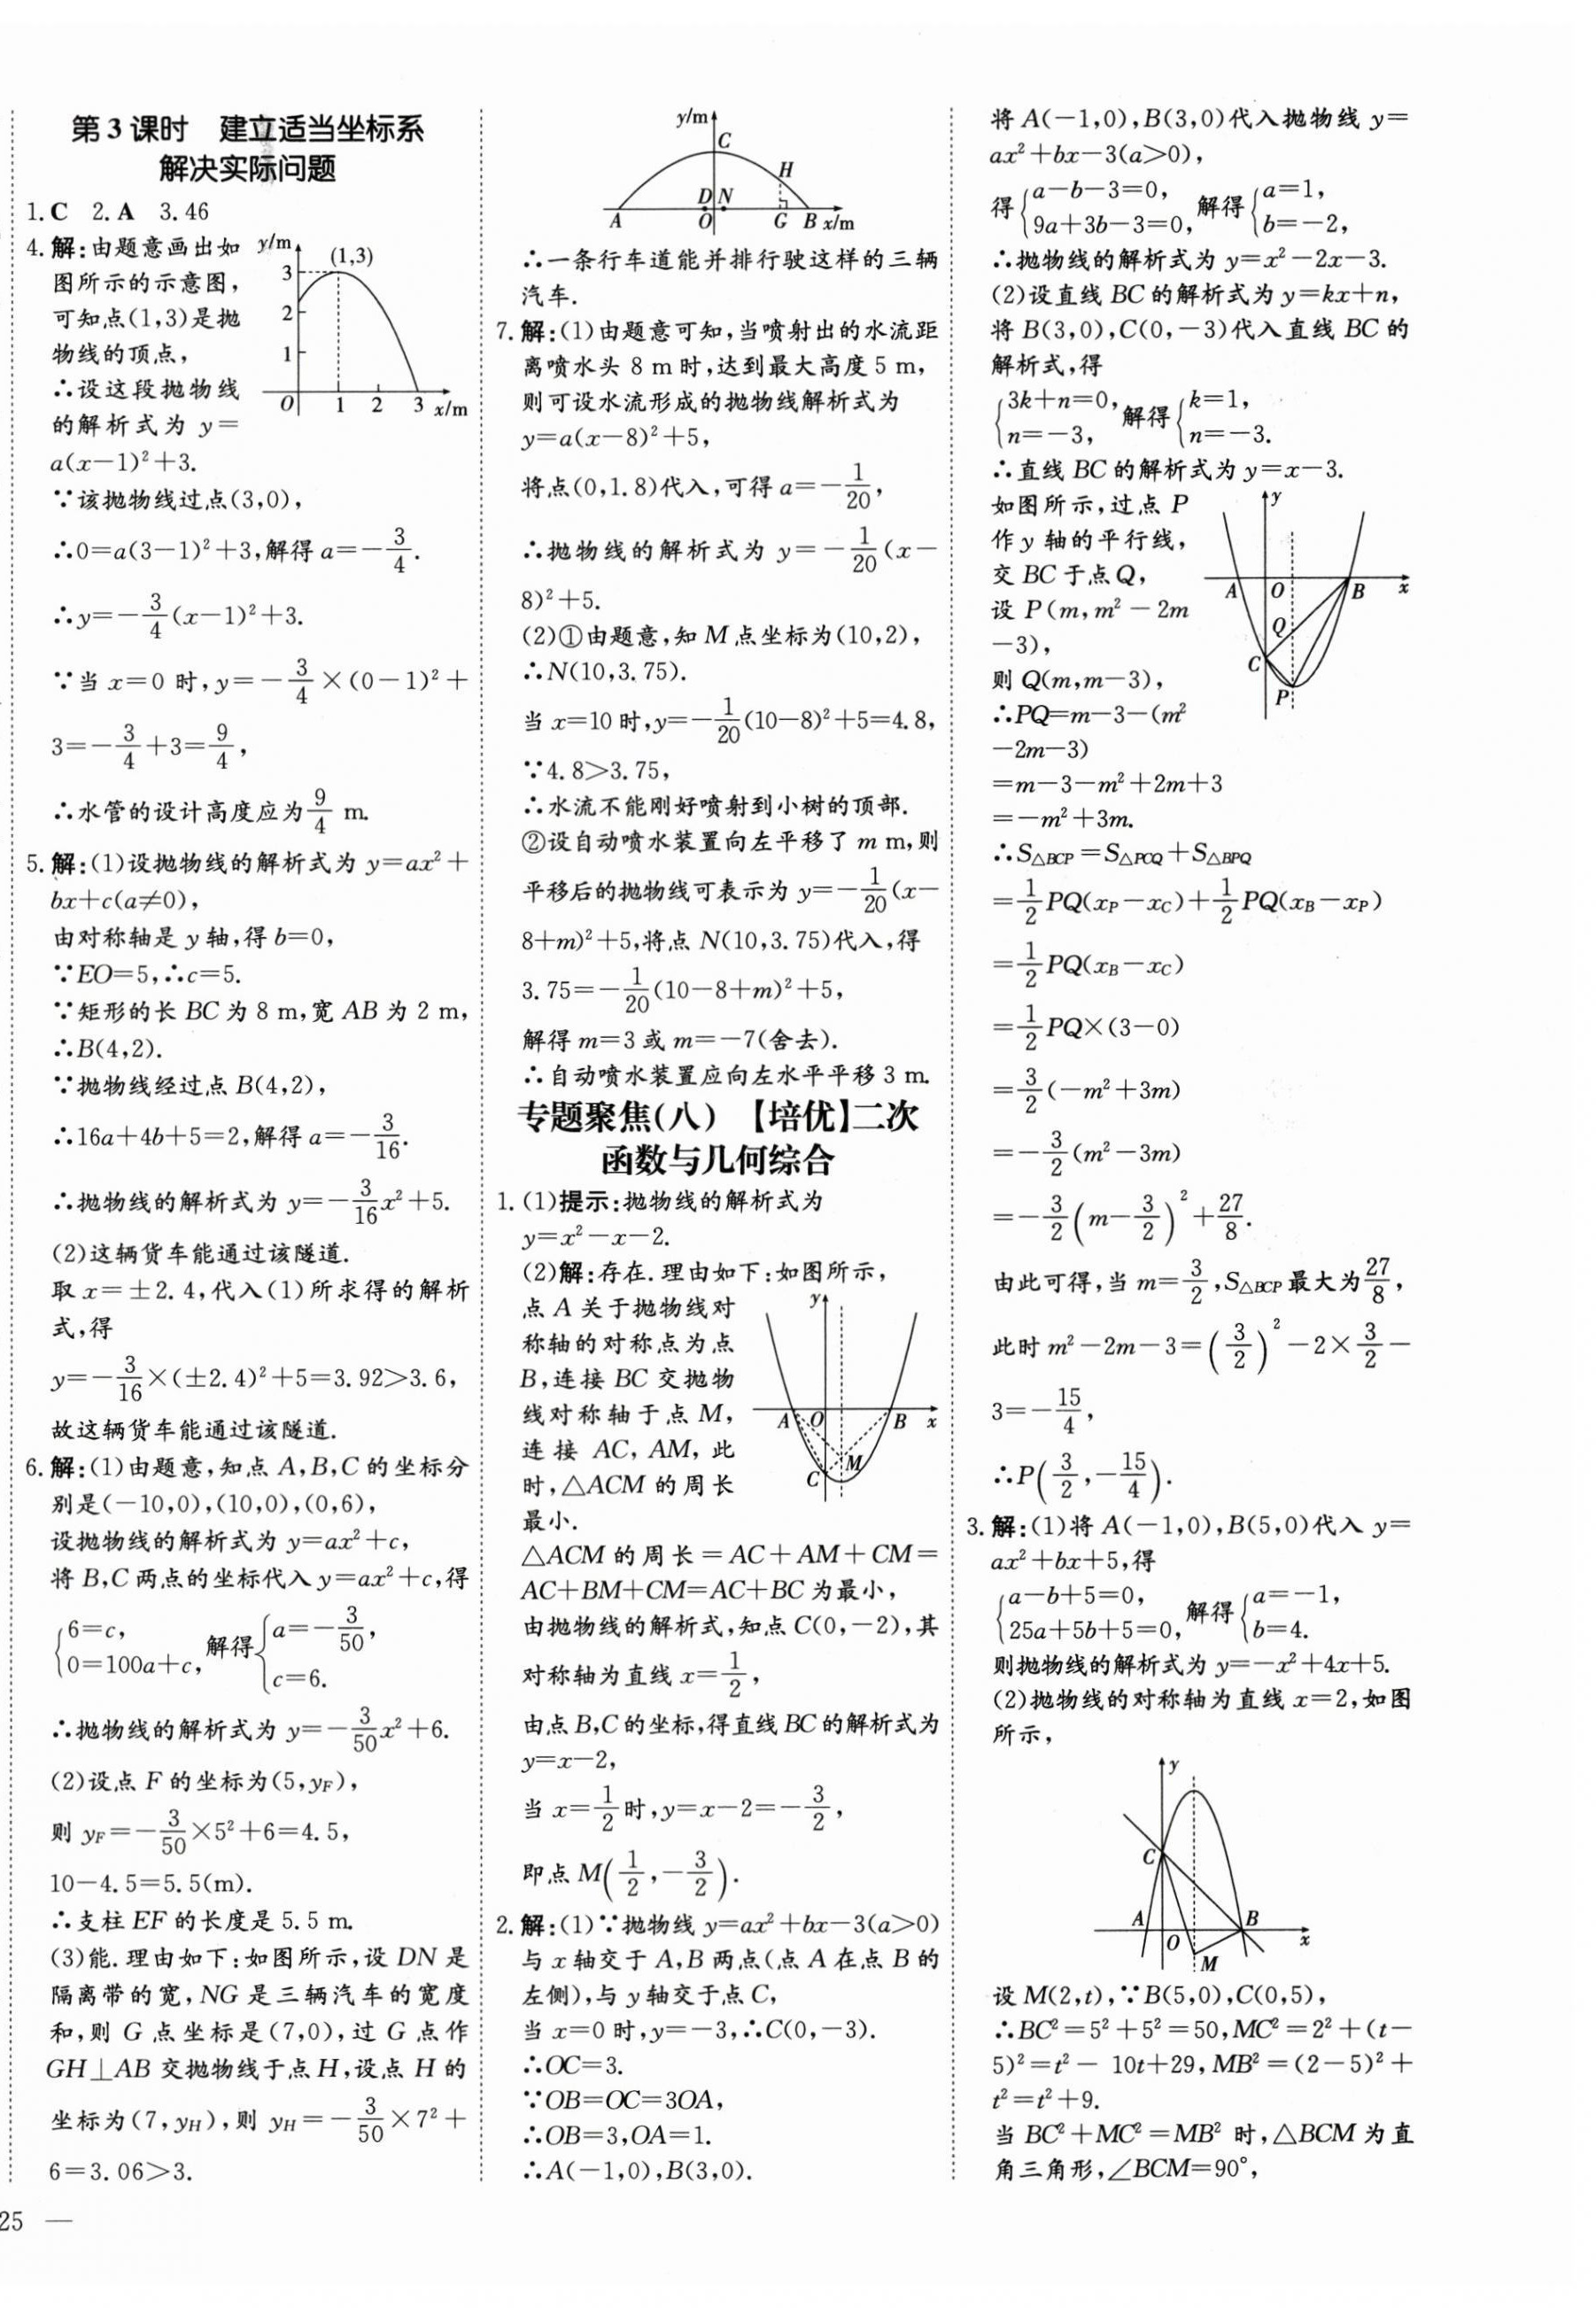 第3课时　建立适当坐标系
解决实际问题
1.C　2.A　3.46
4.解:由题意画出如
图所示的示意图,
可知点(1,3)是抛
物线的顶点,
∴设这段抛物线
的解析式为 y=
a(x-1)²+3.
y/m
(1,3)
3
2
1
O 1 2 3 x/m
∵该抛物线过点(3,0),
∴0=a(3-1)²+3,解得 a=-3/4.
∴y=-3/4(x-1)²+3.
∵当 x=0 时,y=-3/4×(0-1)²+
3=-3/4+3=9/4,
∴水管的设计高度应为9/4 m.
5.解:(1)设抛物线的解析式为 y=ax²+
bx+c(a≠0),
由对称轴是 y 轴,得 b=0,
∵EO=5,∴c=5.
∵矩形的长 BC 为 8 m,宽 AB 为 2 m,
∴B(4,2).
∵抛物线经过点 B(4,2),
∴16a+4b+5=2,解得 a=-3/16.
∴抛物线的解析式为 y=-3/16x²+5.
(2)这辆货车能通过该隧道.
取 x=±2.4,代入(1)所求得的解析
式,得
y=-3/16×(±2.4)²+5=3.92>3.6,
故这辆货车能通过该隧道.
6.解:(1)由题意,知点 A,B,C 的坐标分
别是(-10,0),(10,0),(0,6),
设抛物线的解析式为 y=ax²+c,
将 B,C 两点的坐标代入 y=ax²+c,得
{6=c, 0=100a+c, 解得 {a=-3/50, c=6.
∴抛物线的解析式为 y=-3/50x²+6.
(2)设点 F 的坐标为(5,y_F),
则 y_F=-3/50×5²+6=4.5,
10-4.5=5.5(m).
∴支柱 EF 的长度是 5.5 m.
(3)能.理由如下:如图所示,设 DN 是
隔离带的宽,NG 是三辆汽车的宽度
和,则 G 点坐标是(7,0),过 G 点作
GH⊥AB 交抛物线于点 H,设点 H 的
坐标为(7,y_H),则 y_H=-3/50×7²+
6=3.06>3.
25 —
y/m
C
H
D N
A O G B x/m
∴一条行车道能并排行驶这样的三辆
汽车.
7.解:(1)由题意可知,当喷射出的水流距
离喷水头 8 m 时,达到最大高度 5 m,
则可设水流形成的抛物线解析式为
y=a(x-8)²+5,
将点(0,1.8)代入,可得 a=-1/20,
∴抛物线的解析式为 y=-1/20(x-
8)²+5.
(2)①由题意,知 M 点坐标为(10,2),
∴N(10,3.75).
当 x=10 时,y=-1/20(10-8)²+5=4.8,
∵4.8>3.75,
∴水流不能刚好喷射到小树的顶部.
②设自动喷水装置向左平移了 m m,则
平移后的抛物线可表示为 y=-1/20(x-
8+m)²+5,将点 N(10,3.75)代入,得
3.75=-1/20(10-8+m)²+5,
解得 m=3 或 m=-7(舍去).
∴自动喷水装置应向左水平平移 3 m.
专题聚焦(八)　【培优】二次
函数与几何综合
1.(1)提示:抛物线的解析式为
y=x²-x-2.
(2)解:存在.理由如下:如图所示,
点 A 关于抛物线对
称轴的对称点为点
B,连接 BC 交抛物
线对称轴于点 M,
连接 AC, AM, 此
时,△ACM 的周长
最小.
y
A O B x
C M
△ACM 的周长=AC+AM+CM=
AC+BM+CM=AC+BC 为最小,
由抛物线的解析式,知点 C(0,-2),其
对称轴为直线 x=1/2,
由点 B,C 的坐标,得直线 BC 的解析式为
y=x-2,
当 x=1/2时,y=x-2=-3/2,
即点 M(1/2,-3/2).
2.解:(1)∵抛物线 y=ax²+bx-3(a>0)
与 x 轴交于 A,B 两点(点 A 在点 B 的
左侧),与 y 轴交于点 C,
当 x=0 时,y=-3,∴C(0,-3).
∴OC=3.
∵OB=OC=3OA,
∴OB=3,OA=1.
∴A(-1,0),B(3,0).
将 A(-1,0),B(3,0)代入抛物线 y=
ax²+bx-3(a>0),
得 {a-b-3=0, 9a+3b-3=0, 解得 {a=1, b=-2,
∴抛物线的解析式为 y=x²-2x-3.
(2)设直线 BC 的解析式为 y=kx+n,
将 B(3,0),C(0,-3)代入直线 BC 的
解析式,得
{3k+n=0, n=-3, 解得 {k=1, n=-3.
∴直线 BC 的解析式为 y=x-3.
如图所示,过点 P
作 y 轴的平行线,
交 BC 于点 Q,
设 P(m,m²-2m
-3),
则 Q(m,m-3),
∴PQ=m-3-(m²
-2m-3)
y
A O B x
Q
C
P
=m-3-m²+2m+3
=-m²+3m.
∴S△BCP=S△PCQ+S△BPQ
=1/2PQ(x_P-x_C)+1/2PQ(x_B-x_P)
=1/2PQ(x_B-x_C)
=1/2PQ×(3-0)
=3/2(-m²+3m)
=-3/2(m²-3m)
=-3/2(m-3/2)²+27/8.
由此可得,当 m=3/2,S△BCP最大为27/8,
此时 m²-2m-3=(3/2)²-2×3/2-
3=-15/4,
∴P(3/2,-15/4).
3.解:(1)将 A(-1,0),B(5,0)代入 y=
ax²+bx+5,得
{a-b+5=0, 25a+5b+5=0, 解得 {a=-1, b=4.
则抛物线的解析式为 y=-x²+4x+5.
(2)抛物线的对称轴为直线 x=2,如图
所示,
y
C
A B
O x
M
设 M(2,t),∵B(5,0),C(0,5),
∴BC²=5²+5²=50,MC²=2²+(t-
5)²=t²- 10t+29,MB²=(2-5)²+
t²=t²+9.
当 BC²+MC²=MB² 时,△BCM 为直
角三角形,∠BCM=90°,